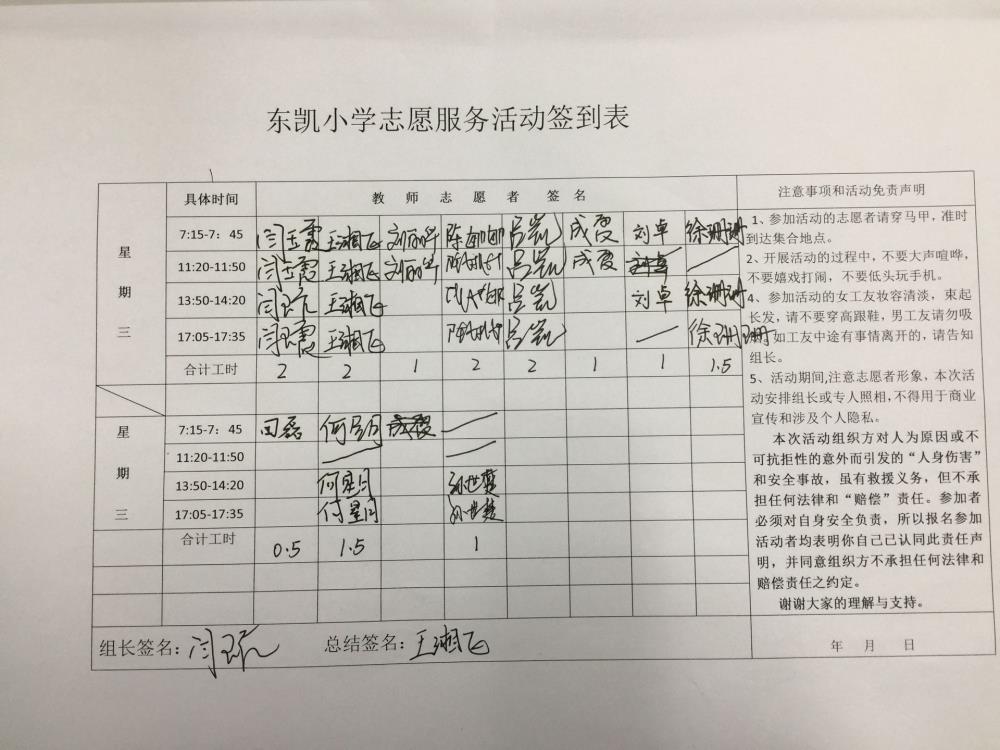 东凯小学志愿服务活动签到表
具体时间 教师志愿者签名 注意事项和活动免责声明
星期三
7:15-7：45 王湘飞 刘丽华 吕凯 成霞 刘卓 徐珊珊
11:20-11:50 王湘飞 刘丽华 吕凯 成霞 刘卓
13:50-14:20 王湘飞 吕凯 刘卓 徐珊珊
17:05-17:35 王湘飞 吕凯 徐珊珊
合计工时 2 2 1 2 2 1 1 1.5
星期三
7:15-7：45 田磊 何星月 成霞
11:20-11:50
13:50-14:20 何星月 孙世楚
17:05-17:35 何星月 孙世楚
合计工时 0.5 1.5 1
1、参加活动的志愿者请穿马甲，准时
到达集合地点。
2、开展活动的过程中，不要大声喧哗，
不要嬉戏打闹，不要低头玩手机。
4、参加活动的女工友妆容清淡，束起
长发，请不要穿高跟鞋，男工友请勿吸
如工友中途有事情离开的，请告知
组长。
5、活动期间,注意志愿者形象，本次活
动安排组长或专人照相,不得用于商业
宣传和涉及个人隐私。
本次活动组织方对人为原因或不
可抗拒性的意外而引发的“人身伤害”
和安全事故，虽有救援义务，但不承
担任何法律和“赔偿”责任。参加者
必须对自身安全负责，所以报名参加
活动者均表明你自己已认同此责任声
明，并同意组织方不承担任何法律和
赔偿责任之约定。
谢谢大家的理解与支持。
组长签名： 总结签名：王湘飞 年 月 日